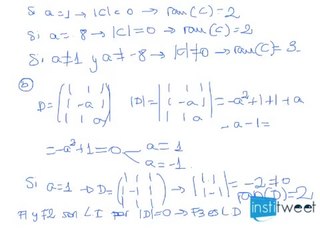 Si a=1 → |C|=0 → ran(C)=2
Si a= 8 → |C|=0 → ran(C)=2
Si a≠1 y a≠-8 → |C|≠0 → ran(C)=3
D= (1 1 1 / 1 -a 1 / 1 1 a) |D|= |1 1 1 / 1 -a 1 / 1 1 a| =-a²+1+1+a
-a-1=
=-a²+1=0 a=1
a=-1
Si a=1 → D= (1 1 1 / 1 -1 1 / 1 1 1) → |1 1 / 1 -1| =-2≠0
ran(D)=2
F1 y F2 son LI por |D|=0 → F3 es LD
institweet